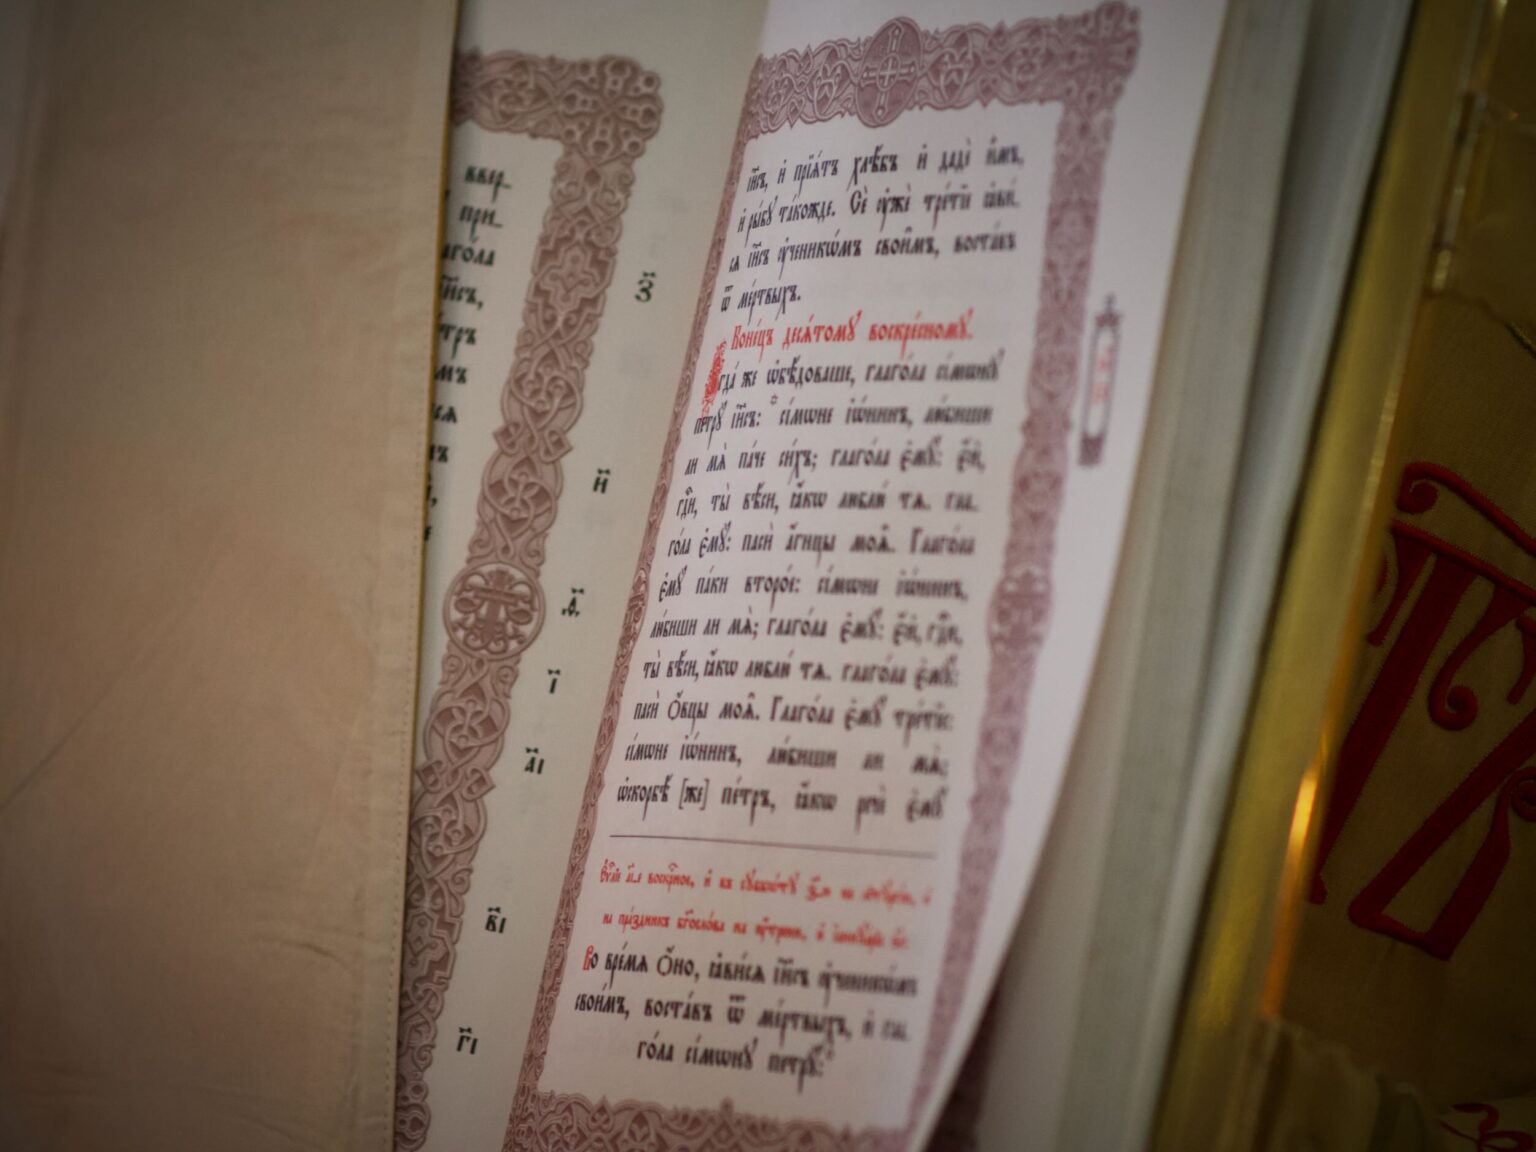 ввер-
при-
аго́ла
і҆и҃съ,
тръ
мъ
сѧ
з҃
и҃
ѳ҃
і҃
а҃і
в҃і
г҃і
і҆и҃съ, и҆ прїѧ́тъ хлѣ́бъ и҆ дадѐ и҆̀мъ,
и҆ ры́бꙋ та́кожде. Сѐ ᲂу҆жѐ тре́тїе ꙗ҆ви́-
сѧ і҆и҃съ ᲂу҆ченикѡ́мъ свои̑мъ, воста́въ
ѿ ме́ртвыхъ.
Коне́цъ десѧ́томꙋ воскре́сномꙋ.
Е҆гда́ же ѡ҆бѣ́доваше, глаго́ла сі́мѡнꙋ
петрꙋ̀ і҆и҃съ: сі́мѡне і҆ѡ́нинъ, лю́биши
ли мѧ̀ па́че си́хъ; глаго́ла є҆мꙋ̀: є҆́й,
гдⷭ҇и, ты̀ вѣ́си, ꙗ҆́кѡ люблю́ тѧ. гла-
го́ла є҆мꙋ̀: пасѝ а҆́гнцы моѧ̑. Глаго́ла
є҆мꙋ̀ па́ки второ́е: сі́мѡне і҆ѡ́нинъ,
лю́биши ли мѧ̀; глаго́ла є҆мꙋ̀: є҆́й, гдⷭ҇и,
ты̀ вѣ́си, ꙗ҆́кѡ люблю́ тѧ. глаго́ла є҆мꙋ̀:
пасѝ ѻ҆́вцы моѧ̑. Глаго́ла є҆мꙋ̀ тре́тїе:
сі́мѡне і҆ѡ́нинъ, лю́биши ли мѧ̀;
ѡ҆скорбѣ́ [же] пе́тръ, ꙗ҆́кѡ речѐ є҆мꙋ̀
на пра́здникъ бг҃осло́ва на ᲂу҆́трени,
Во вре́мѧ ѻ҆́но, ꙗ҆ви́сѧ і҆и҃съ ᲂу҆ченикѡ́мъ
свои̑мъ, воста́въ ѿ ме́ртвыхъ, и҆ гла-
го́ла сі́мѡнꙋ петрꙋ̀: